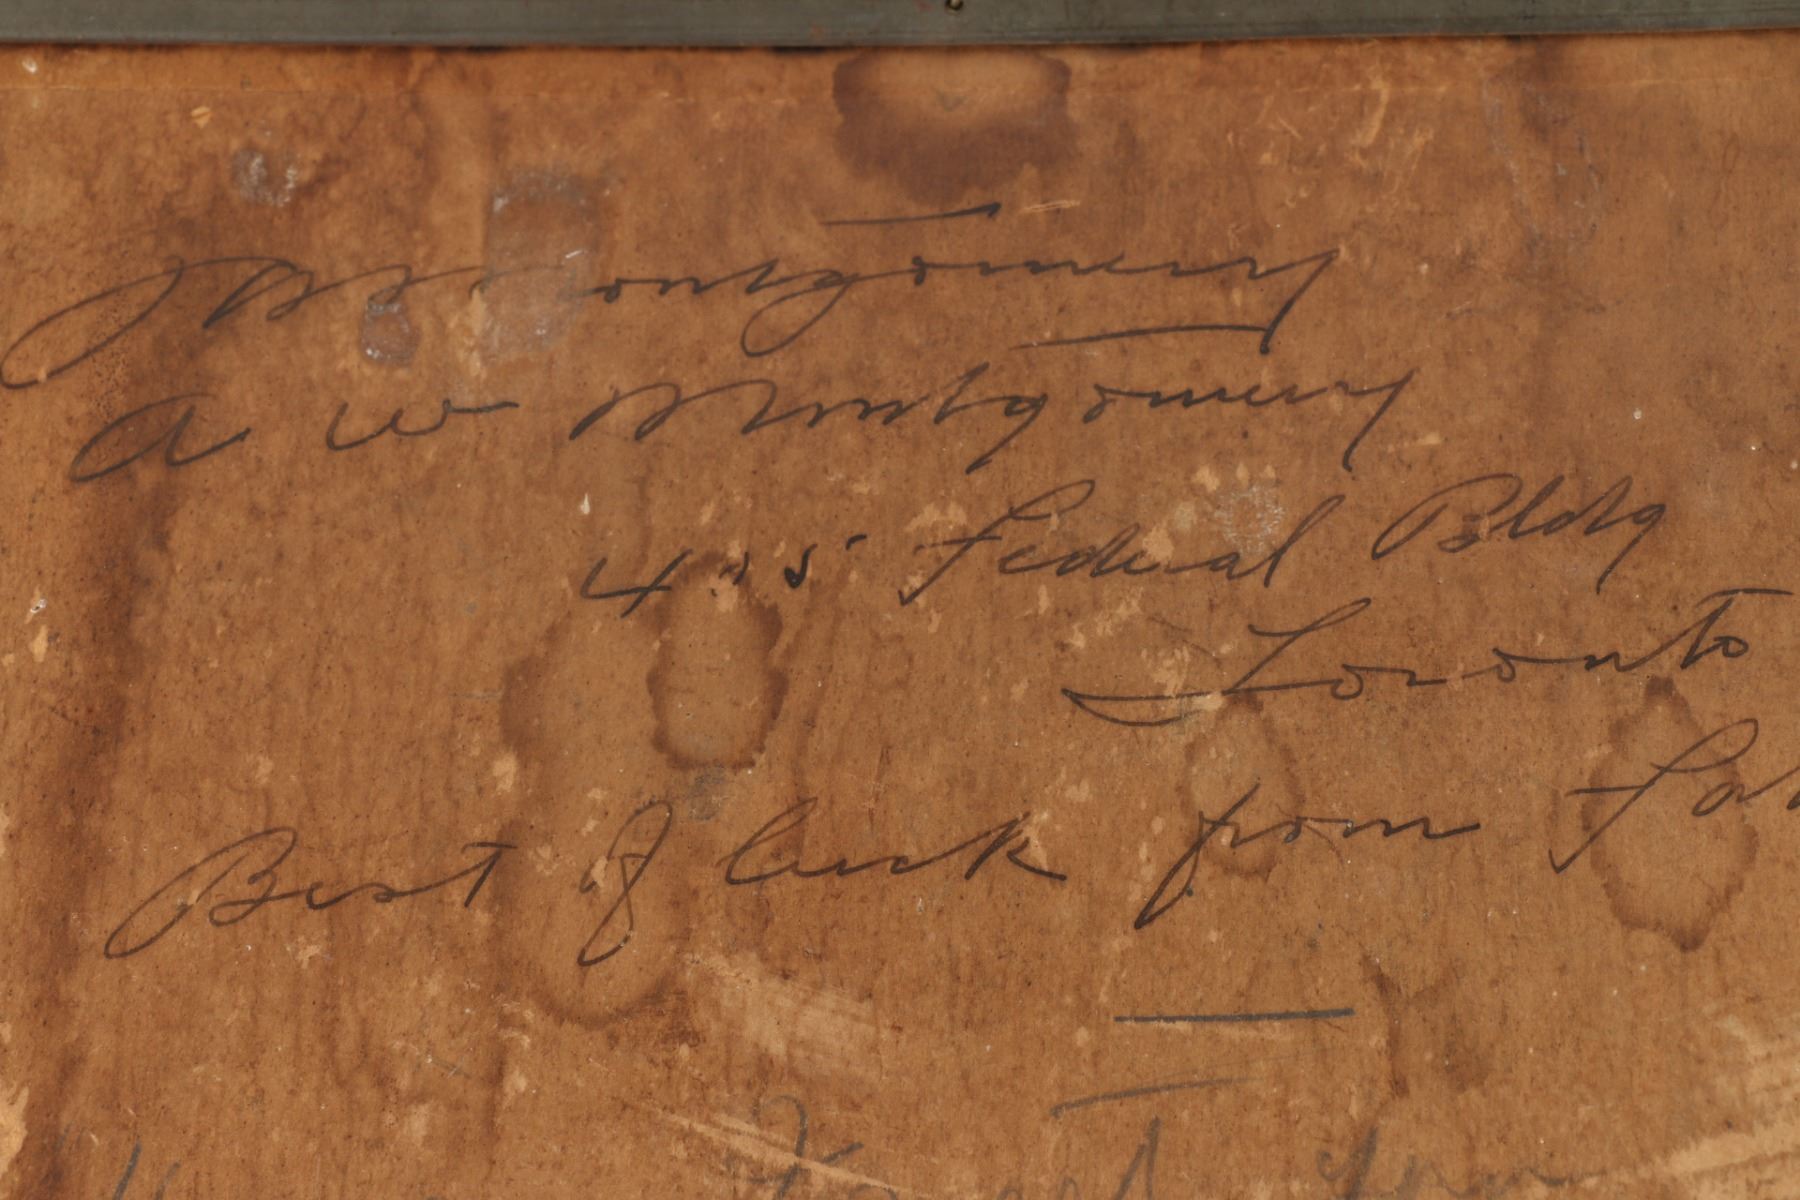 J B Montgomery
A W Montgomery
415 Federal Bldg
Toronto
Best of luck from